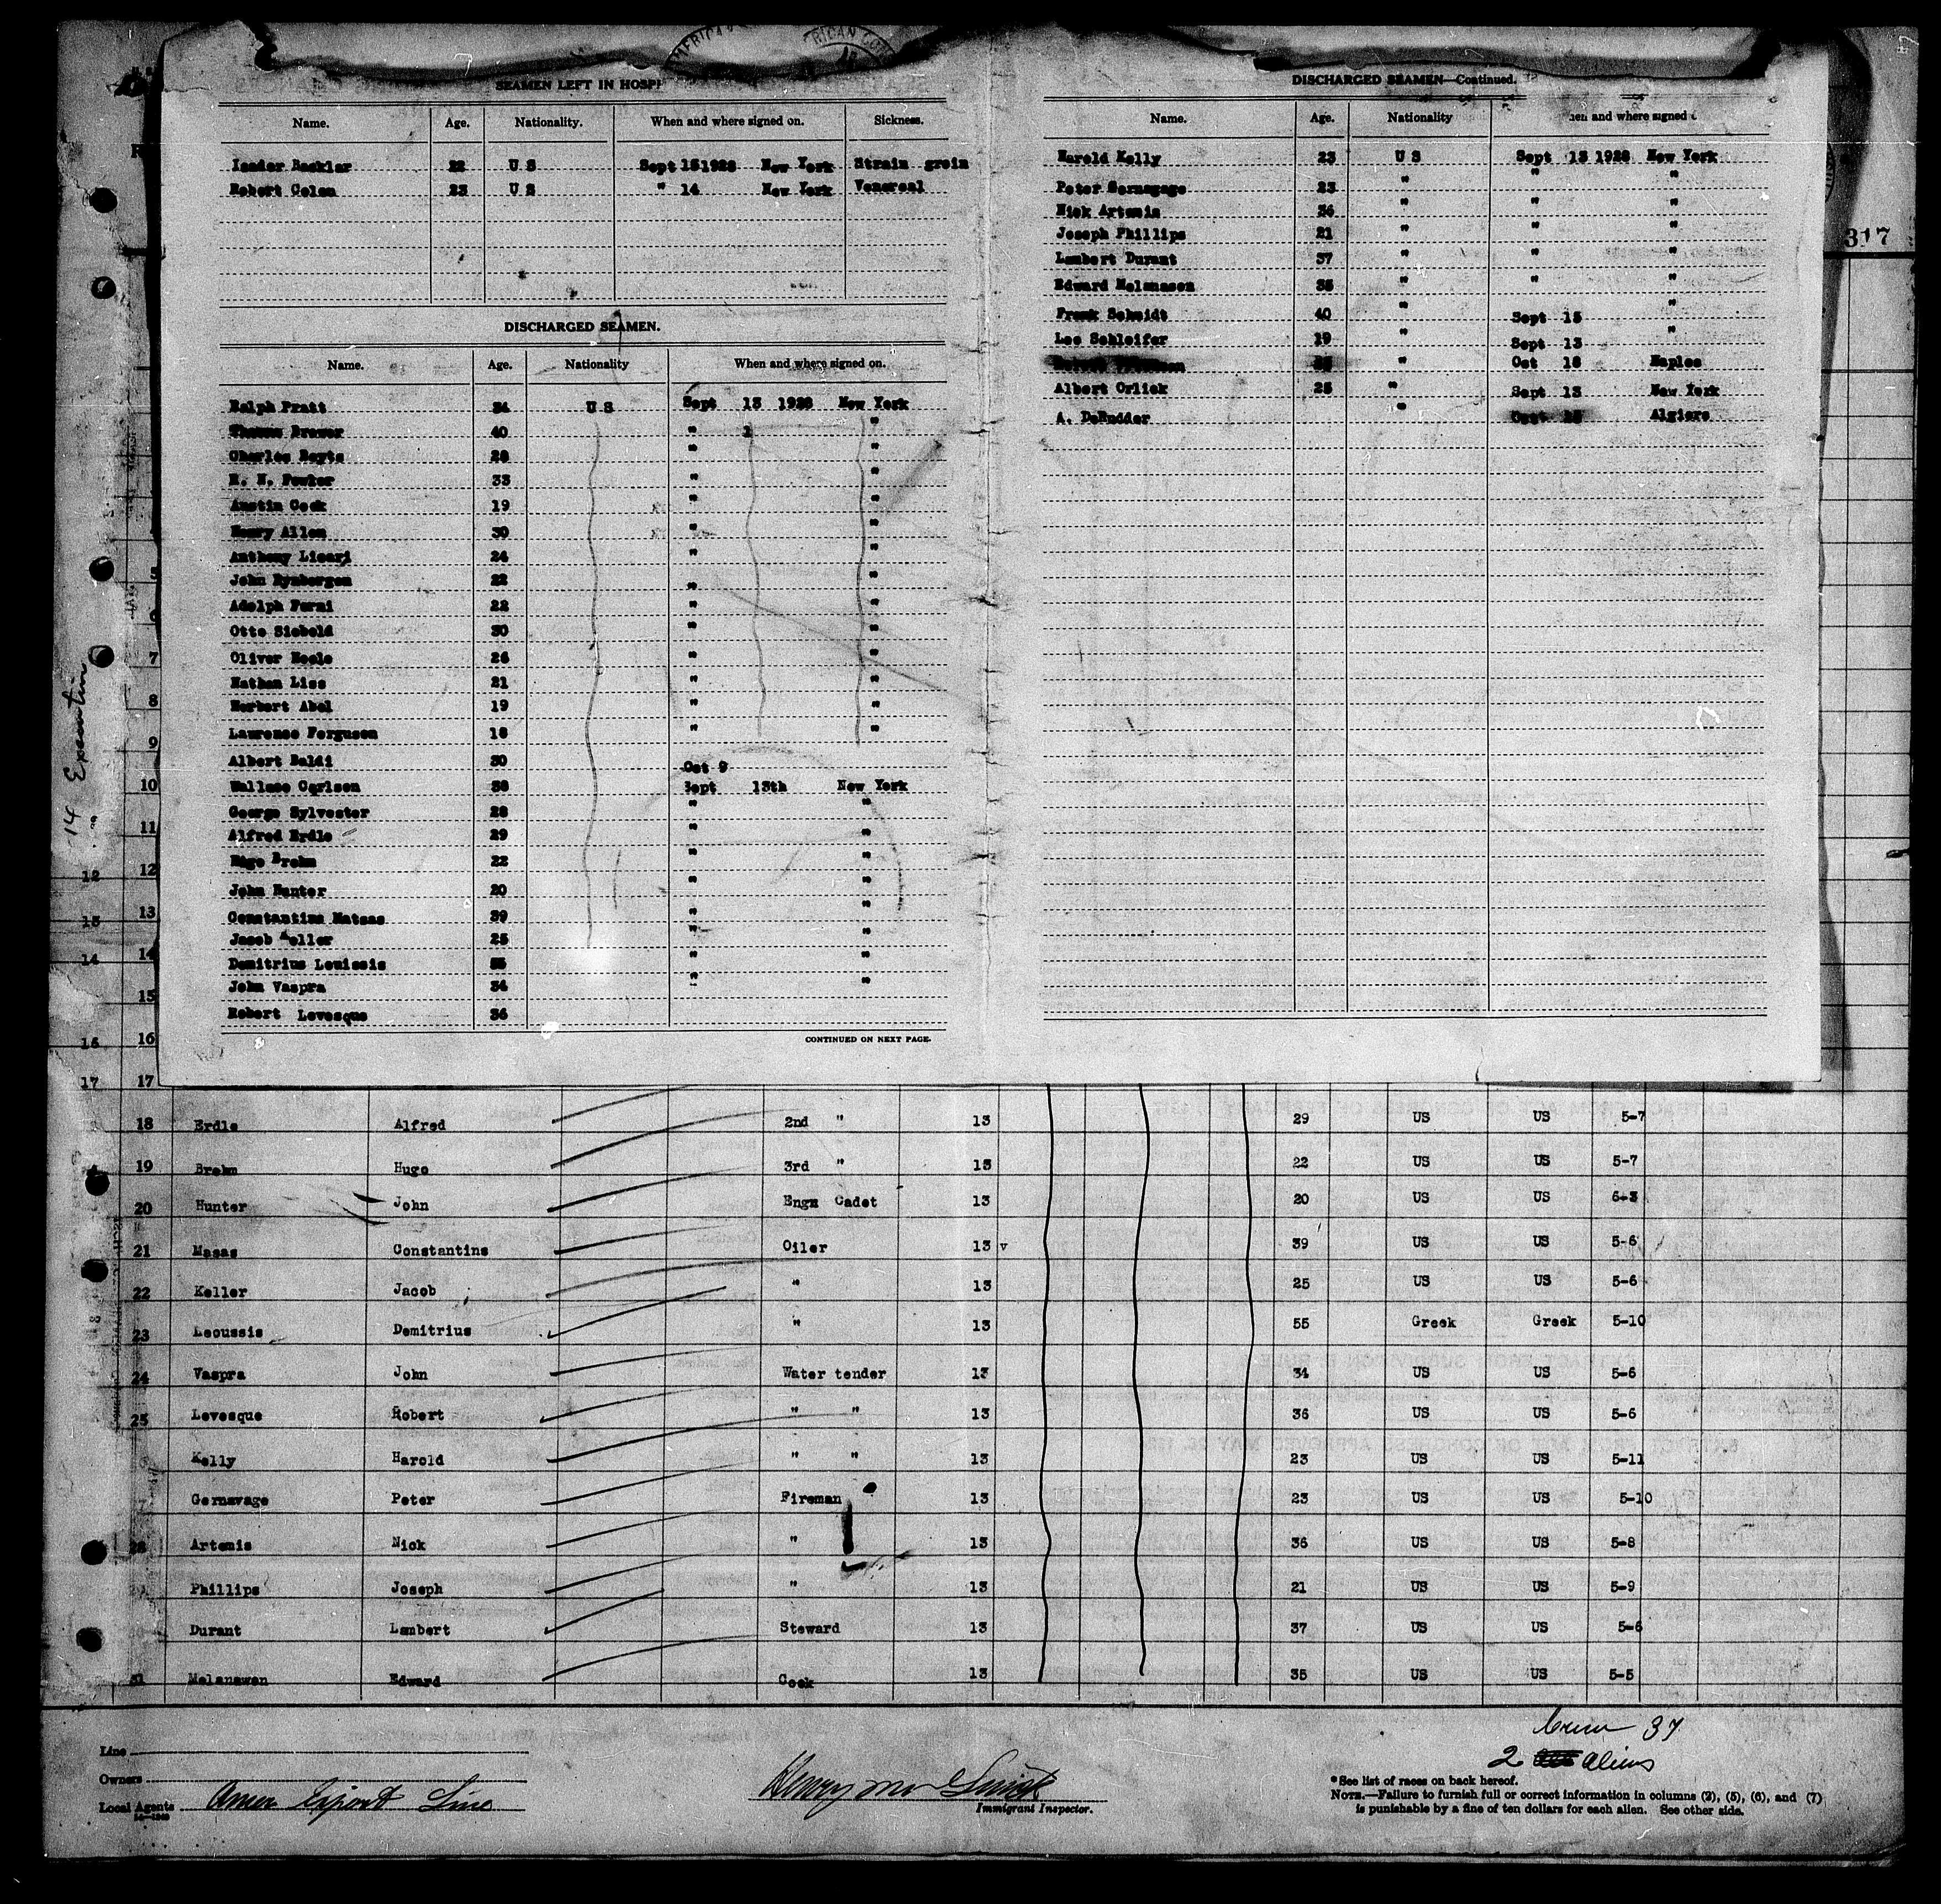 SEAMEN LEFT IN HOSPI
Name. Age. Nationality. When and where signed on. Sickness.
22 U S Sept 15 1928 New York Strain groin
Robert Colon 23 U S " 14 New York Venereal
DISCHARGED SEAMEN.
Name. Age. Nationality When and where signed on.
Ralph Pratt 34 U S Sept 13 1928 New York
Thomas Brewer 40 " "
Charles 28 " "
H. H. Fowler 33 " "
Austin Cook 19 " "
Henry Allen 30 " "
Anthony Licari 24 " "
John Rynbergen 22 " "
Adolph Forni 22 " "
Otto Siebold 30 " "
Oliver 26 " "
Nathan Liss 21 " "
Herbert Abel 19 " "
Laurence Ferguson 18 " "
Albert Baldi 30 Oct 9
Wallace Carlson 38 Sept 13th New York
George Sylvester 28 " "
Alfred Erdle 29 " "
Hugo Brehm 22 " "
John Hunter 20 " "
Constantine Matsas 39 " "
Jacob Keller 25 " "
Demitrius Louissis 55 " "
John Vaspra 34 " "
Robert Levesque 36
CONTINUED ON NEXT PAGE.
DISCHARGED SEAMEN—Continued.
Name. Age. Nationality hen and where signed
Harold Kelly 23 U S Sept 13 1928 New York
Peter 23 " " "
Nick Artemis 36 " " "
Joseph Phillips 21 " " "
Lambert Durant 37 " " "
Edward Melanason 35 " " "
Frank Schmidt 40 " Sept 15 "
Leo Schleifer 19 " Sept 13 "
" Oct 18 Naples
Albert Orlick 25 " Sept 13 New York
A. DeRudder " Algiers
317
14 Examtin
7
8
9
10
11
12 12
13 13
14 14
15
16 16
17 17
18 Erdle Alfred 2nd " 13 29 US US 5-7
19 Brehm Hugo 3rd " 13 22 US US 5-7
20 Hunter John Engn Cadet 13 20 US US 6-3
21 Masas Constantine Oiler 13 v 39 US US 5-6
22 Keller Jacob " 13 25 US US 5-6
23 Leoussis Demitrius " 13 55 Greek Greek 5-10
24 Vaspra John Water tender 13 34 US US 5-6
25 Levesque Robert " " 13 36 US US 5-6
Kelly Harold " " 13 23 US US 5-11
Gernavage Peter Fireman 13 23 US US 5-10
28 Artemis Nick " 13 36 US US 5-8
Phillips Joseph " 13 21 US US 5-9
Durant Lambert Steward 13 37 US US 5-6
31 Melanawen Edward Cook 13 35 US US 5-5
Crew 37
2 aliens
Line
Owners
Local Agents Amer Export Line
Immigrant Inspector.
*See list of races on back hereof.
NOTE.—Failure to furnish full or correct information in columns (2), (5), (6), and (7)
is punishable by a fine of ten dollars for each alien. See other side.